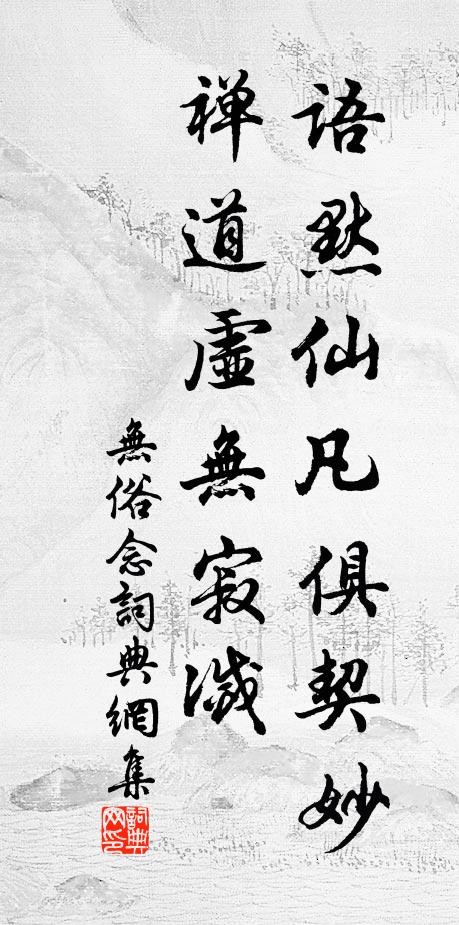 語默仙凡俱契妙
禅道虛無寂滅
無俗念詞典網集
詞典网印